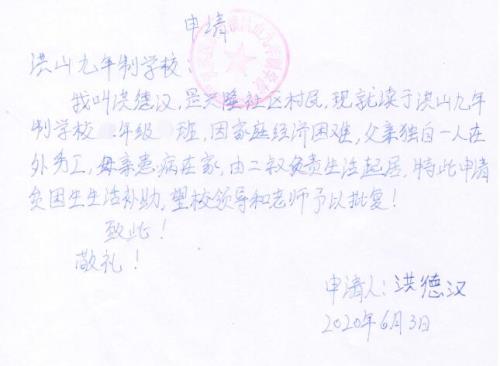 申请
洪山九年制学校:
我叫洪德汉,是兴隆社区村民,现就读于洪山九年
制学校 年级 班,因家庭经济困难,父亲独自一人在
外务工,母亲患病在家,由二叔负责生活起居,特此申请
贫困生生活补助,望校领导和老师予以批复!
致此!
敬礼!
申请人:洪德汉
2020年6月3日